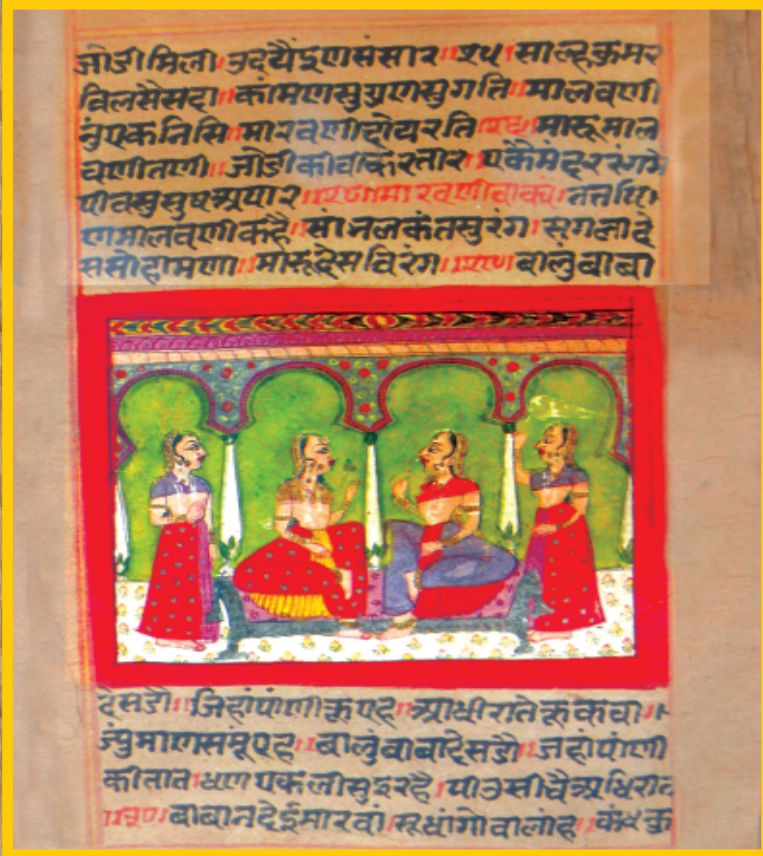 जोडी मिली॥उदयैइणसंसार॥२५॥साल्हकुमर
विलसैसदा॥कांमणसुगुणसुगति॥मालवणी
नुंएकनिसि॥मारवणीदोयरति॥२६॥मारूमाल
वणीतणी॥जोडीकीवीकरतार॥एकैमंदररंगमे
पीवसुसुषअपार॥मारवणीवाक्यं॥
णमालवणीकहै॥सांभलकंतसुरंग॥सगलादे
ससोहामणा॥मारूदेसविरंग॥बालुंबाबा
देसडौ॥जिहांपांणीकूएह॥आधीरातेकूकवा॥
ज्युंमाणस॥बालुंबाबादेसडौ॥जहांपांणी
कीतात॥रहै॥
॥बाबानदेईमारवां॥सूधांगोवालांह॥